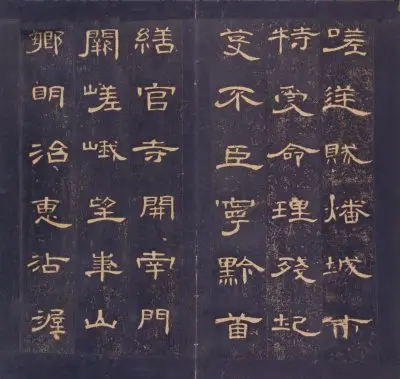 嗟逆賊燔城市
特受命理殘圮
芟不臣寧黔首
繕官寺開南門
闕嵯峨望華山
鄉明治惠沾渥